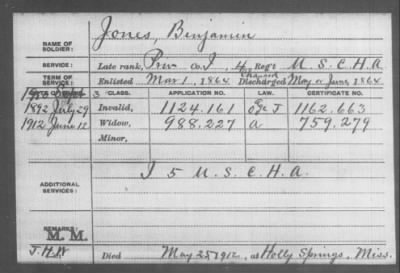 Jones, Benjamin
NAME OF SOLDIER:
SERVICE: Late rank, Priv Co. I, 4 Reg't U. S. C. H. A.
TERM OF SERVICE: Enlisted Mar 1, 1864 Discharged May or June, 1864
CLASS. APPLICATION NO. LAW. CERTIFICATE NO.
1892 July 29 Invalid, 1124.161 J 1162.663
1912 June 12 Widow, 988.227 a 759.279
Minor,
ADDITIONAL SERVICES: I 5 U. S. C. H. A.
REMARKS:
M. M.
Died May 25 1912, at Holly Springs, Miss.